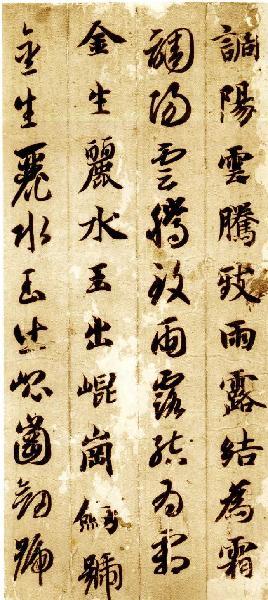 調陽雲騰致雨露結為霜
調陽雲騰致雨露結為霜
金生麗水玉出崐崗劍號
金生麗水玉出崐崗劍號